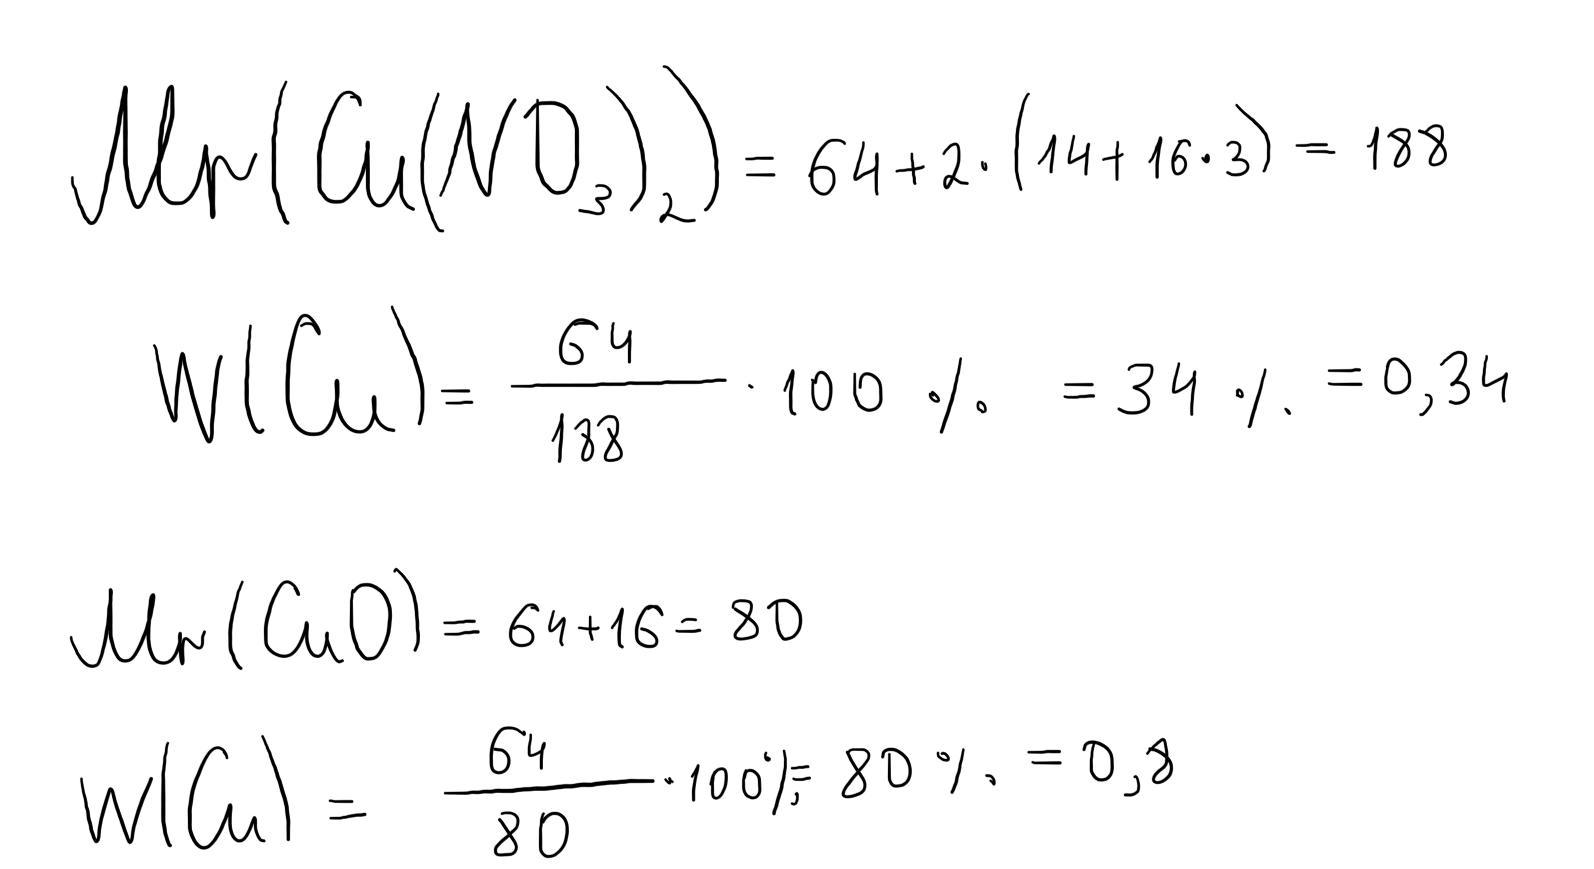 Mr(Cu(NO₃)₂) = 64+2·(14+16·3) = 188
W(Cu) = 64/188 · 100 % = 34 % = 0,34
Mr(CuO) = 64+16 = 80
W(Cu) = 64/80 · 100% = 80 % = 0,8